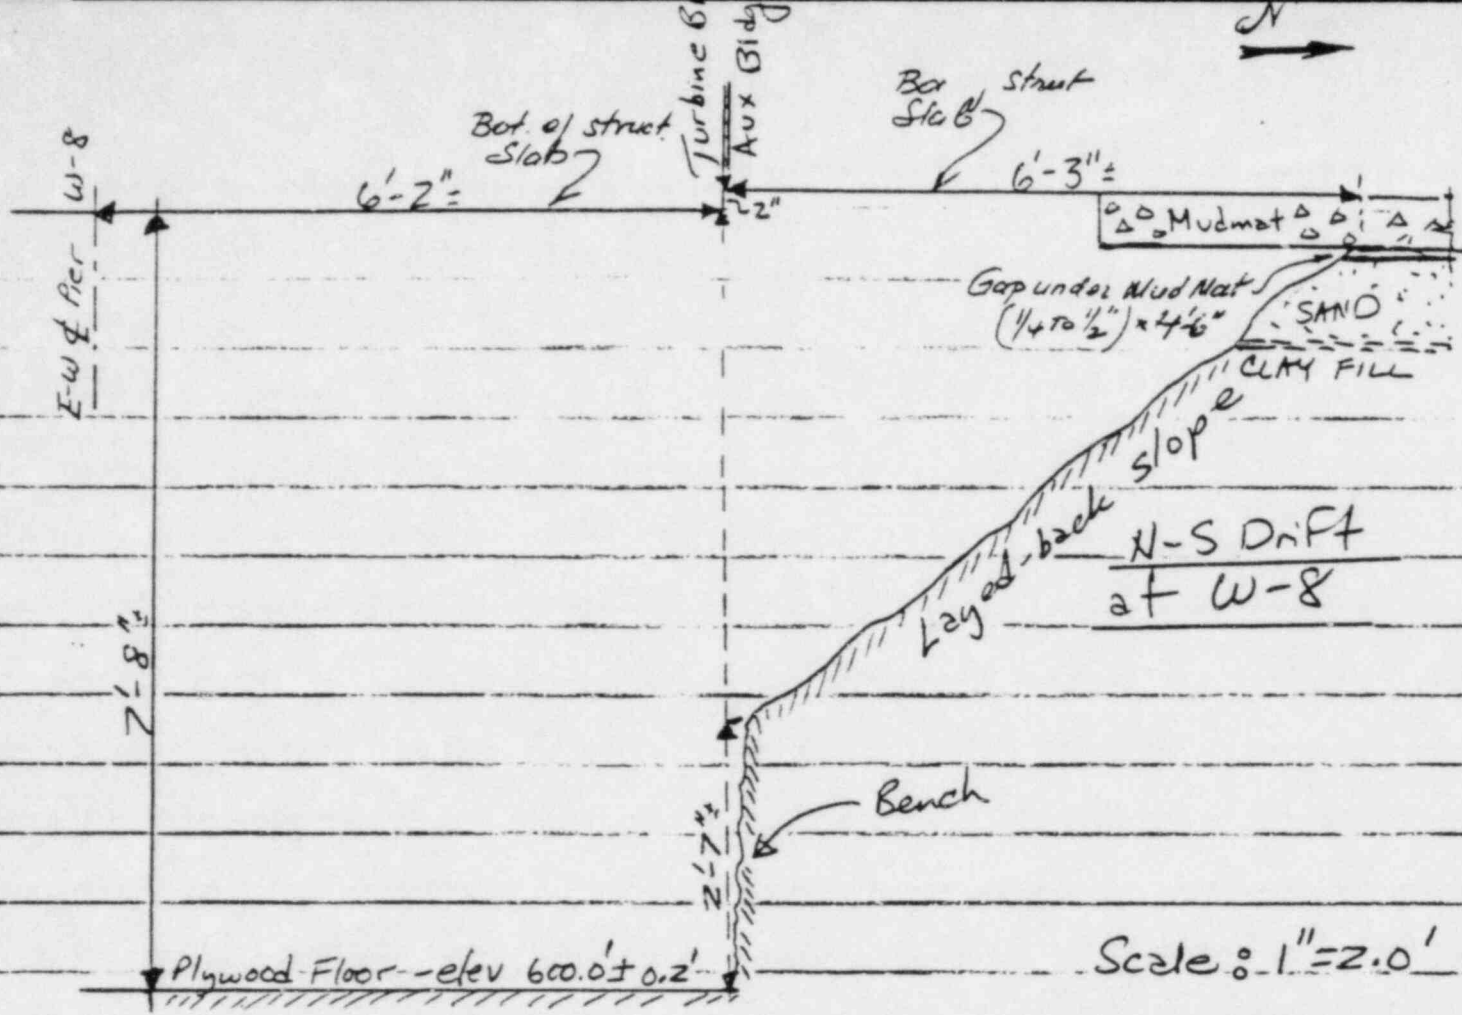 N
Turbine
Aux Bldg
Bot. of struct.
Slab
strut
Slab
6'-2"±
6'-3"±
2"
E-W ₵ Pier W-8
Mudmat
Gap under Mud Mat
(1/4 TO 1/2") x 4'-6"
SAND
CLAY FILL
Layed-back slope
N-S Drift
at W-8
7'-8"±
Bench
2'-7"±
Plywood Floor - elev 600.0'± 0.2'
Scale: 1"=2.0'